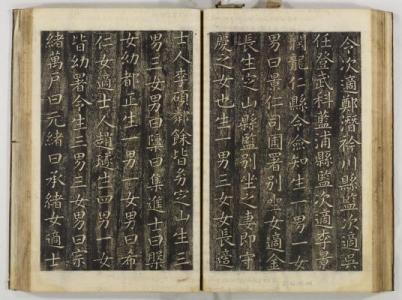 令次適鄭潛衿川縣監次適吳
任登武科藍浦縣監次適李景
潤龍仁縣令僉知生一男一女
男曰景仁司圃署別坐女適金
長生定山縣監別坐之妻即守
慶之女也生一男三女女長適
士人李碩鄰餘皆幼定山生三
男三女男曰檃曰集進士曰槃
女幼都正生一男一女男曰
仁女適士人趙生四男一女
皆幼署令生三男三女男曰崇
緒萬戶曰元緒曰承緒女適士